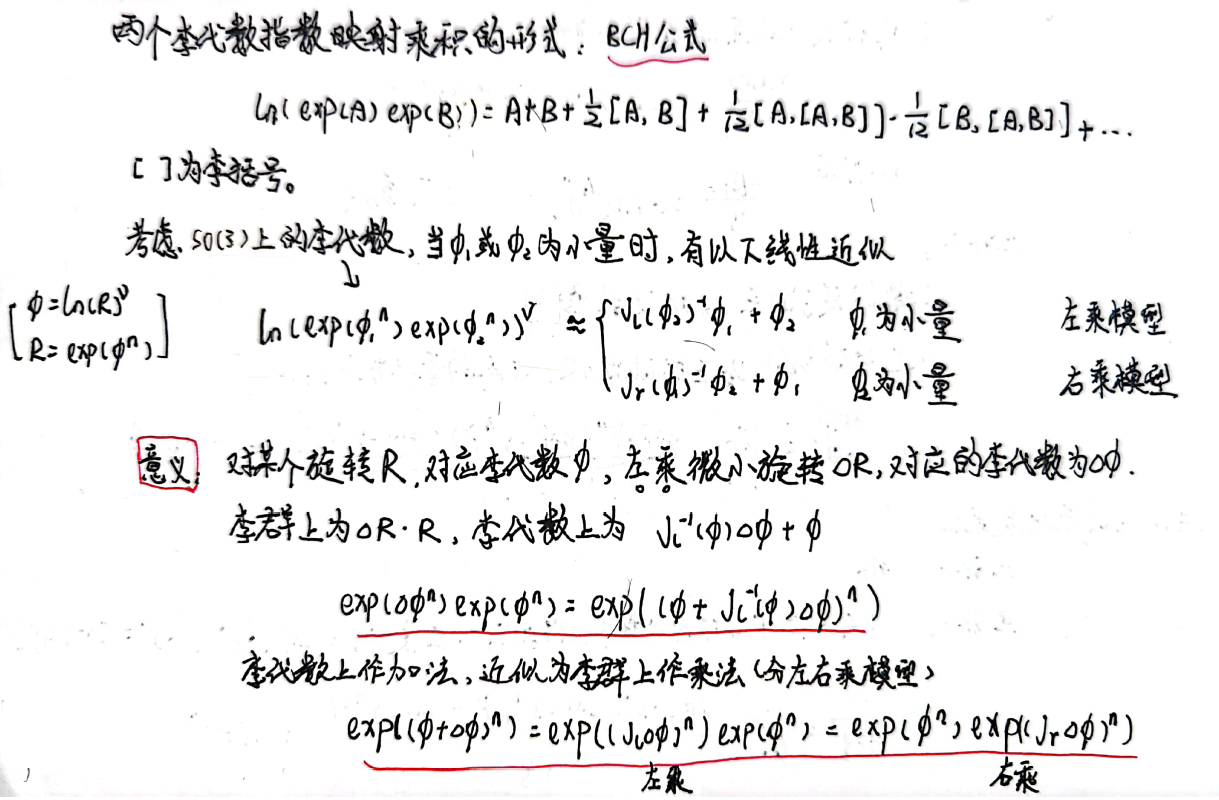 两个李代数指数映射乘积的形式：BCH公式
ln(exp(A)exp(B)) = A+B+½[A,B]+1/12[A,[A,B]]-1/12[B,[A,B]]+...
[ ]为李括号。
考虑SO(3)上的李代数，当ϕ₁或ϕ₂为小量时，有以下线性近似
↓
[ϕ=ln(R)^∨
R=exp(ϕ^∧)]
ln(exp(ϕ₁^∧)exp(ϕ₂^∧))^∨ ≈ { Jₗ(ϕ₂)⁻¹ϕ₁+ϕ₂ ϕ₁为小量 左乘模型
Jᵣ(ϕ₁)⁻¹ϕ₂+ϕ₁ ϕ₂为小量 右乘模型
意义：对某个旋转R，对应李代数ϕ，左乘微小旋转ΔR，对应的李代数为Δϕ.
李群上为ΔR·R，李代数上为 Jₗ⁻¹(ϕ)Δϕ+ϕ
exp(Δϕ^∧)exp(ϕ^∧)=exp((ϕ+Jₗ⁻¹(ϕ)Δϕ)^∧)
李代数上作加法，近似为李群上作乘法（分左右乘模型）
exp((ϕ+Δϕ)^∧)=exp((JₗΔϕ)^∧)exp(ϕ^∧)=exp(ϕ^∧)exp((JᵣΔϕ)^∧)
左乘 右乘